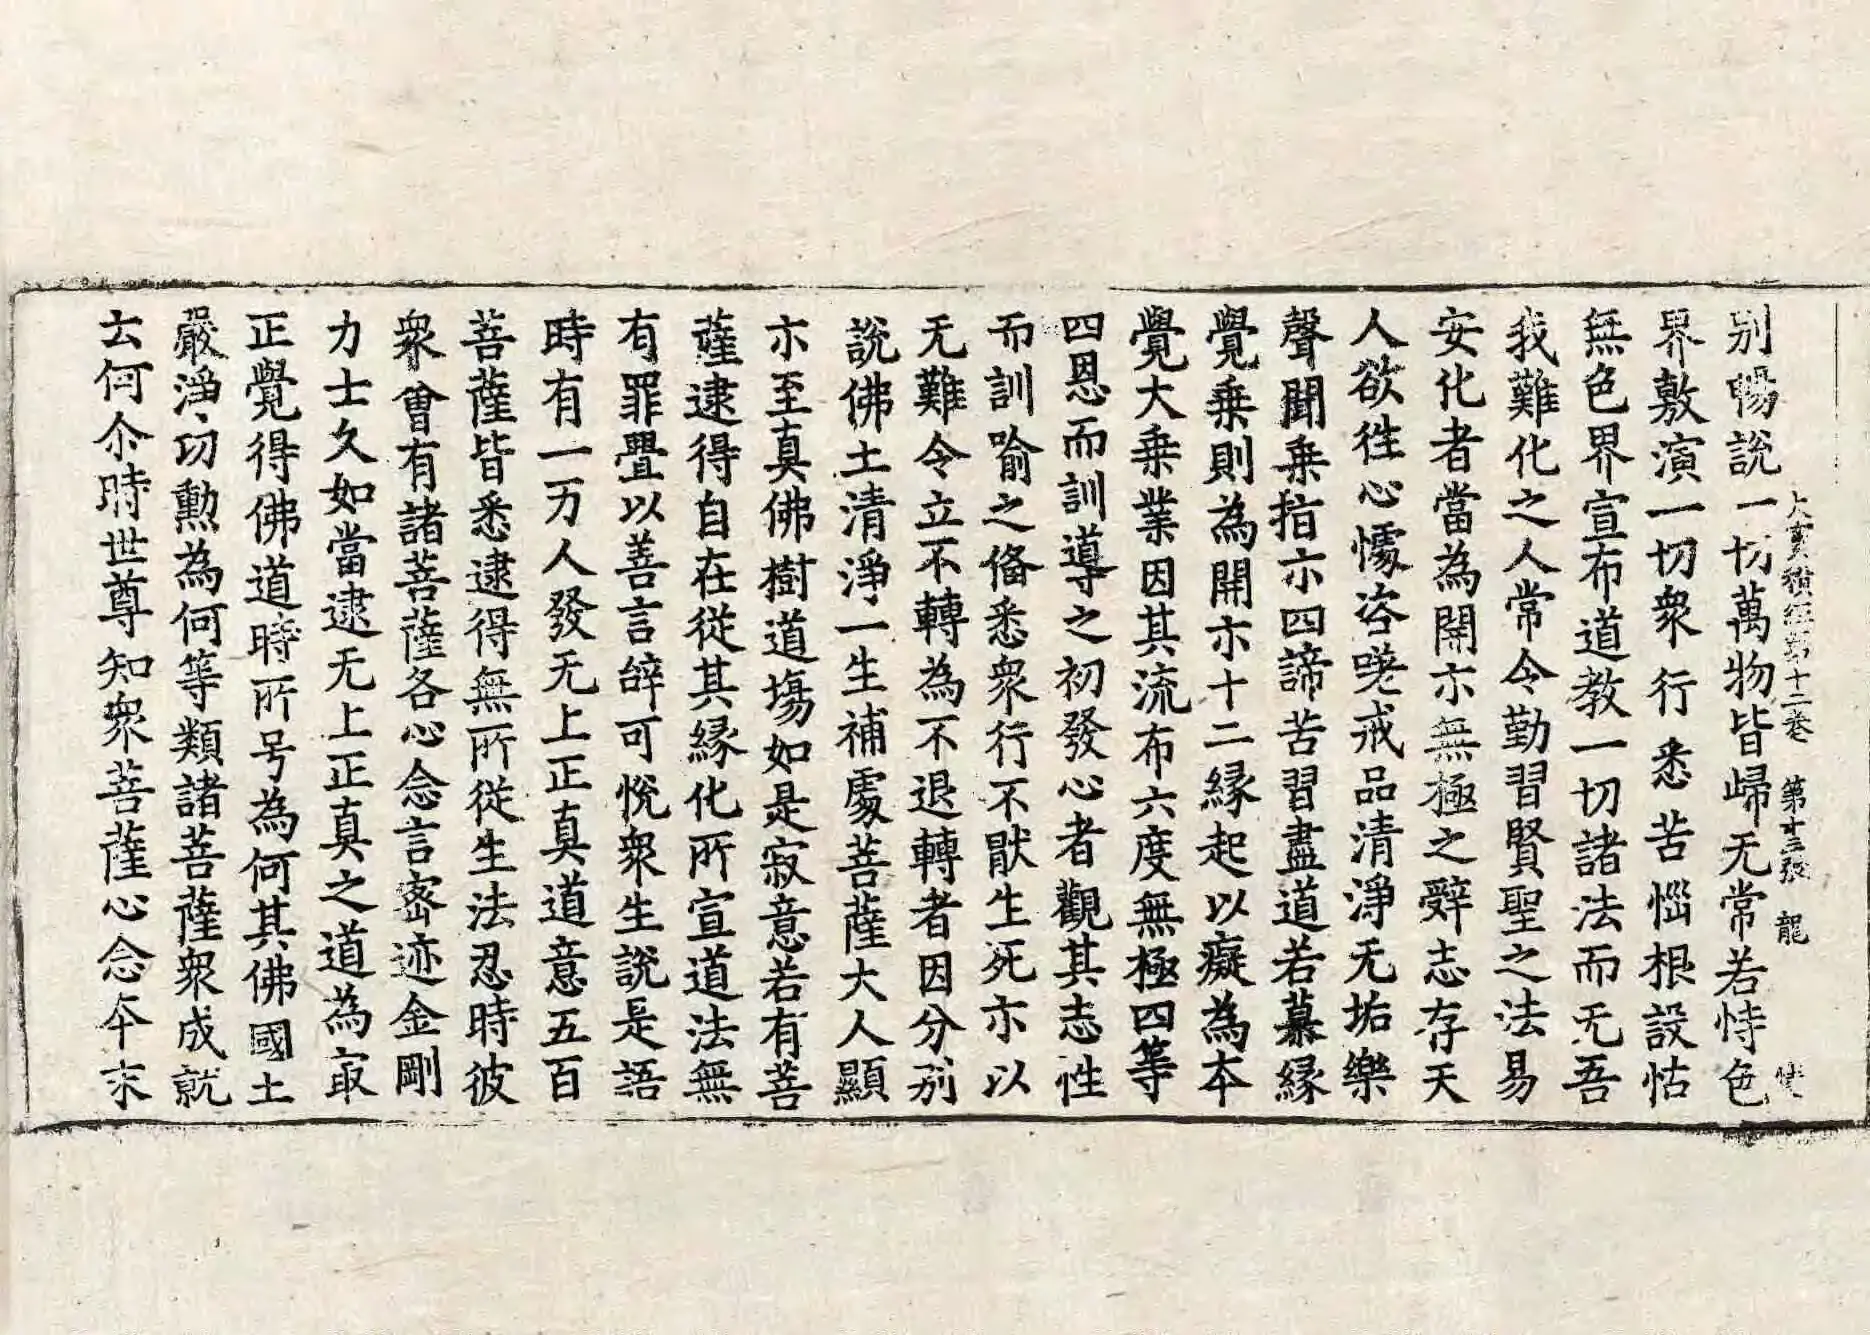 大寶積經第十二卷　第十三張　龍
別暢說一切萬物皆歸无常若恃色
界敷演一切衆行悉苦惱根設怙
無色界宣布道教一切諸法而无吾
我難化之人常令勤習賢聖之法易
安化者當為開示無極之辯志存天
人欲徃心懅咨嗟戒品清淨无垢樂
聲聞乗指示四諦苦習盡道若慕縁
覺乗則為開示十二縁起以癡為本
覺大乗業因其流布六度無極四等
四恩而訓導之初發心者觀其志性
而訓喻之俻悉衆行不猒生死示以
无難令立不轉為不退轉者因分別
說佛土清淨一生補處菩薩大人顯
示至真佛樹道場如是寂意若有菩
薩逮得自在從其縁化所宣道法無
有罪舋以善言辞可悅衆生說是語
時有一万人發无上正真道意五百
菩薩皆悉逮得無所從生法忍時彼
衆會有諸菩薩各心念言密迹金剛
力士久如當逮无上正真之道為㝡
正覺得佛道時所号為何其佛國土
嚴淨功勲為何等類諸菩薩衆成就
云何尒時世尊知衆菩薩心念本末